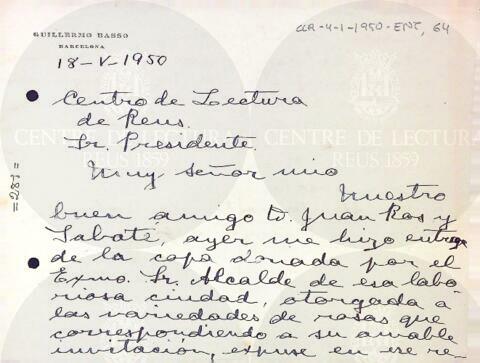 GUILLERMO BASSO
BARCELONA
CLR-4-1-1950-ENT, 64
18-V-1950
Centro de Lectura
de Reus.
Sr. Presidente.
Muy señor mio
Nuestro
buen amigo D. Juan Ros y
Sabaté, ayer me hizo entrega
de la copa donada por el
Exmo. Sr. Alcalde de esa labo-
riosa ciudad, otorgada a
las variedades de rosas que
correspondiendo a su amable
invitación, expuse en ese re
=287=
CENTRE DE LECTURA
REUS 1859
CENTRE DE LECTUR
REUS 1859